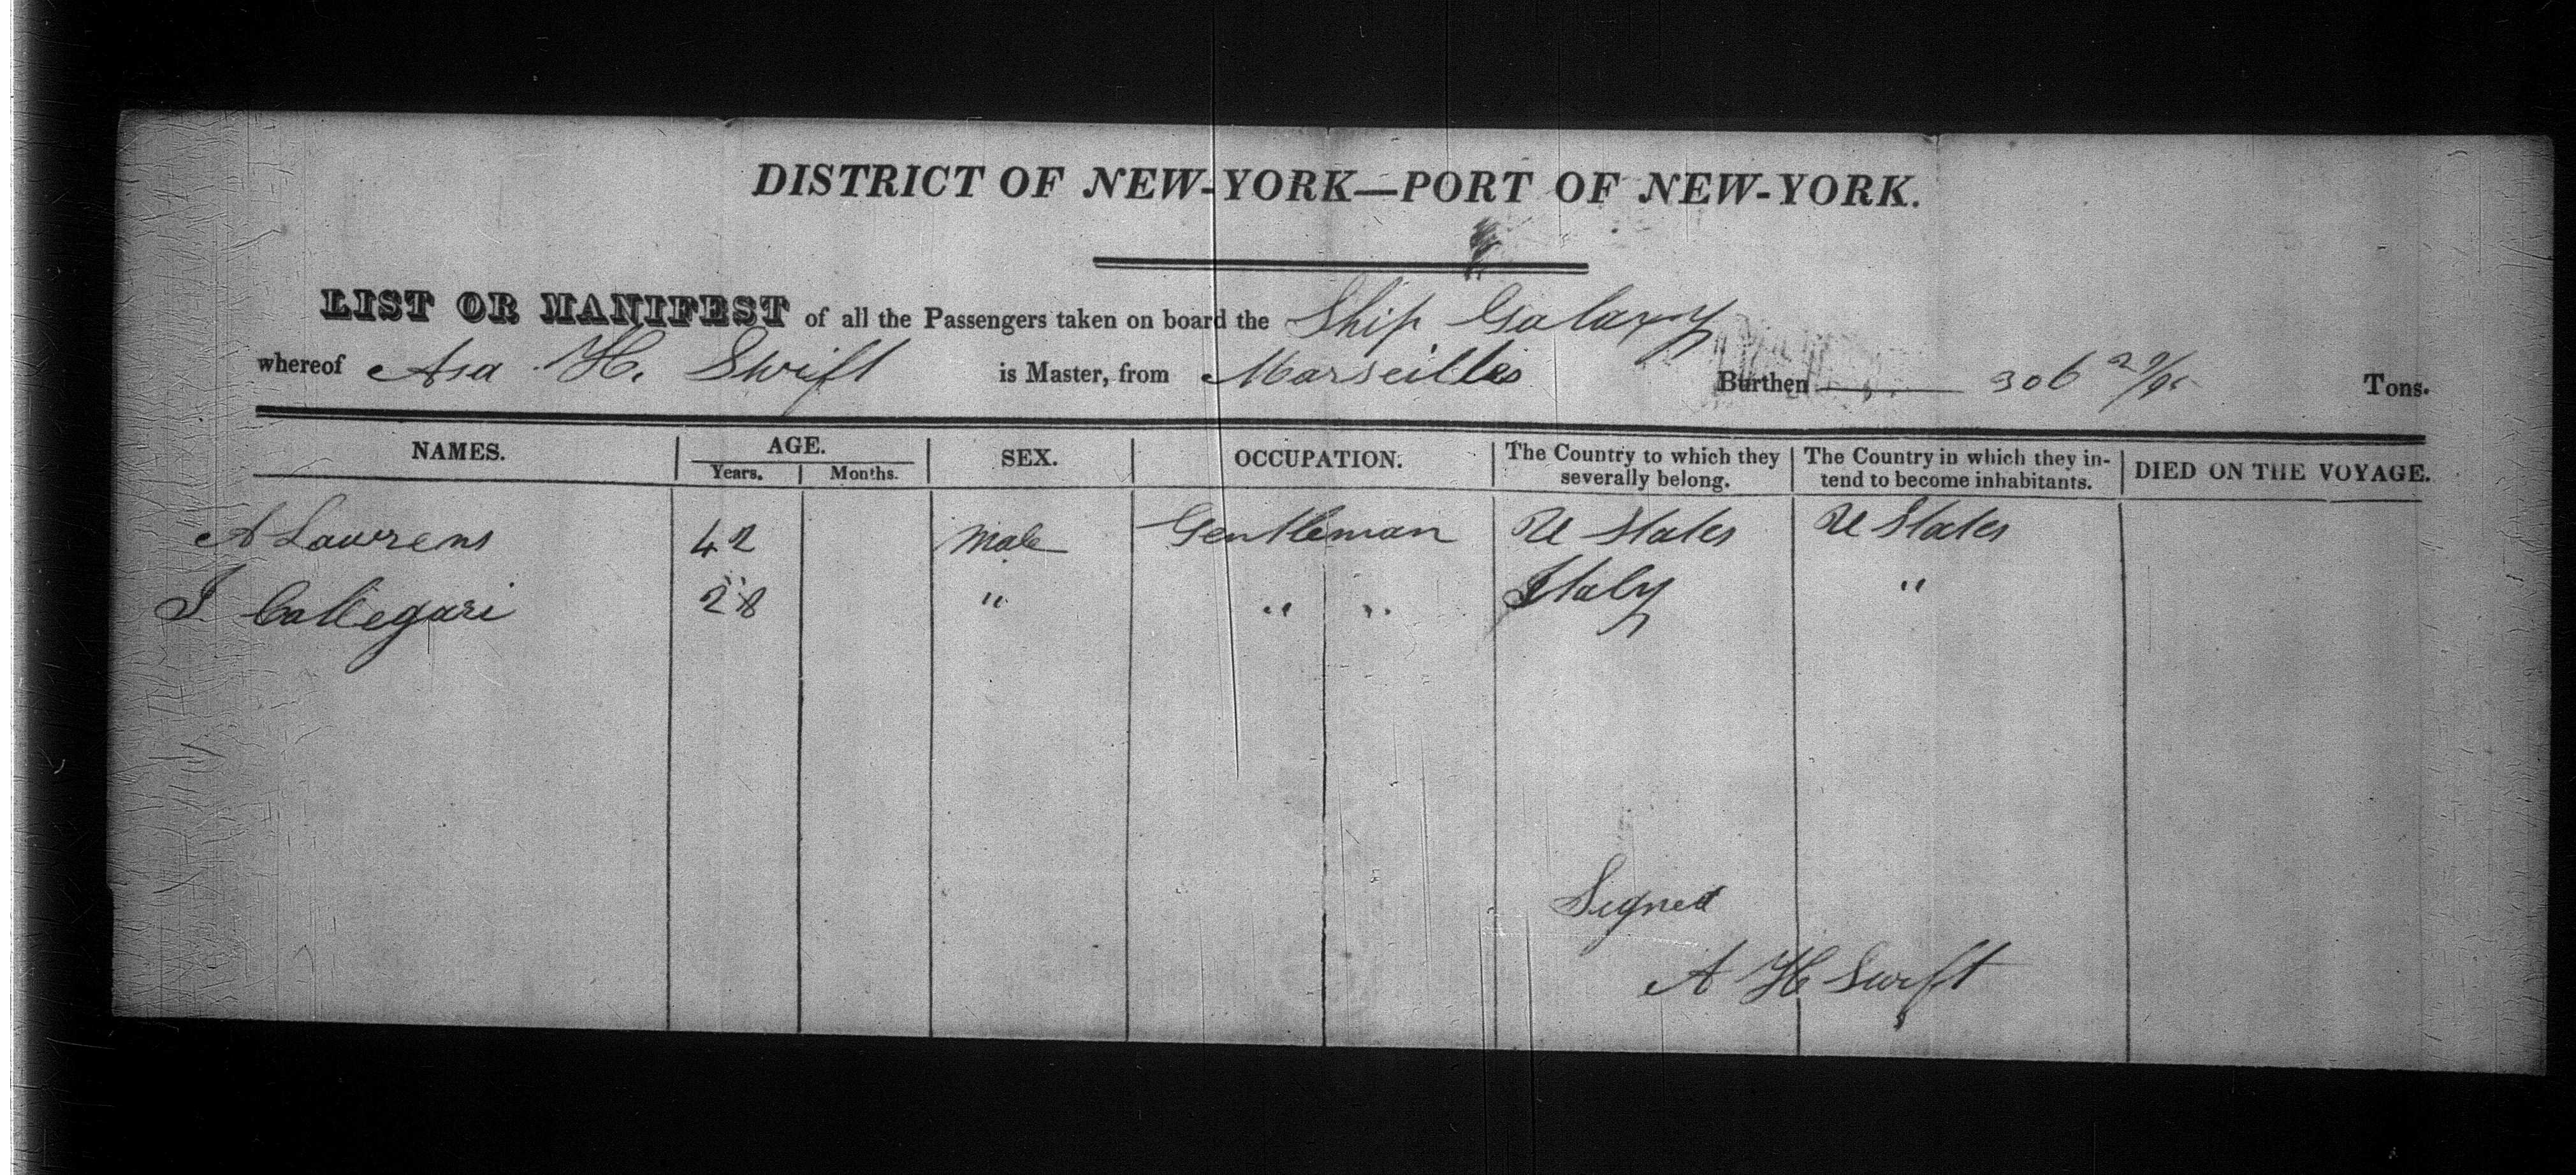 DISTRICT OF NEW-YORK—PORT OF NEW-YORK.
LIST OR MANIFEST of all the Passengers taken on board the Ship Galaxy
whereof Asa H. Swift is Master, from Marseilles Burthen 306 29/95 Tons.
NAMES. AGE. SEX. OCCUPATION. The Country to which they severally belong. The Country in which they intend to become inhabitants. DIED ON THE VOYAGE.
Years. Months.
A Lawrens 42 Male Gentleman U States U States
J. Callegari 28 " " " Italy "
Signed
A H Swift